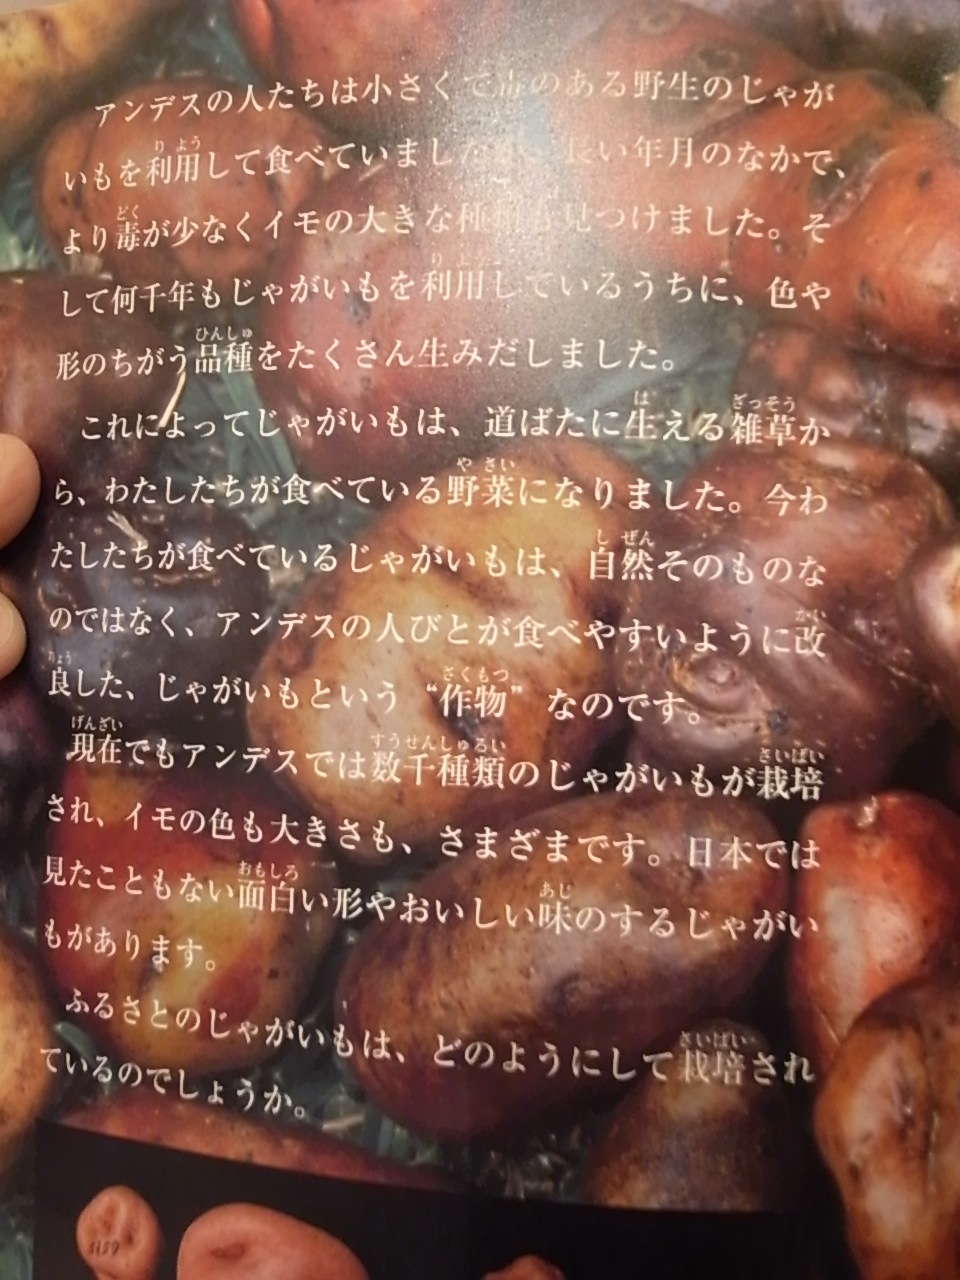 アンデスの人たちは小さくて毒のある野生のじゃが
いもを利用して食べていましたが、長い年月のなかで、
より毒が少なくイモの大きな種類も見つけました。そ
して何千年もじゃがいもを利用しているうちに、色や
形のちがう品種をたくさん生みだしました。
これによってじゃがいもは、道ばたに生える雑草か
ら、わたしたちが食べている野菜になりました。今わ
たしたちが食べているじゃがいもは、自然そのものな
のではなく、アンデスの人びとが食べやすいように改
良した、じゃがいもという“作物”なのです。
現在でもアンデスでは数千種類のじゃがいもが栽培
され、イモの色も大きさも、さまざまです。日本では
見たこともない面白い形やおいしい味のするじゃがい
もがあります。
ふるさとのじゃがいもは、どのようにして栽培され
ているのでしょうか。